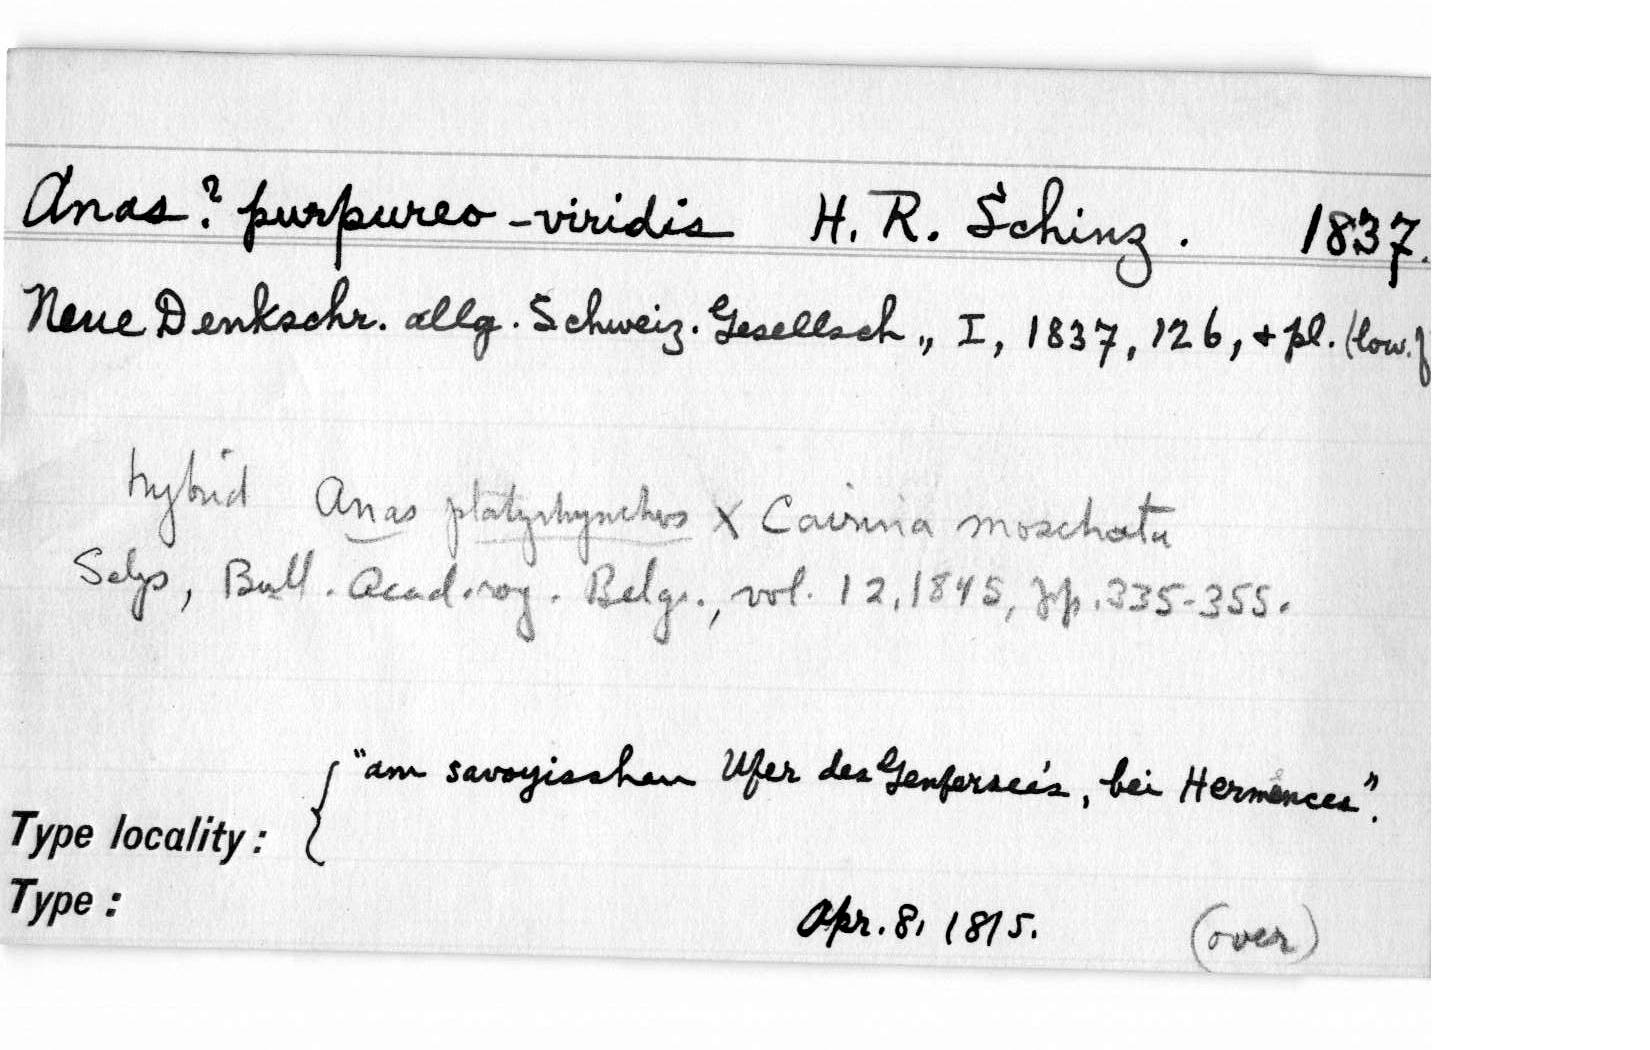 Anas? purpureo-viridis H. R. Schinz. 1837.
Neue Denkschr. allg. Schweiz. Gesellsch., I, 1837, 126, + pl. (low. f
hybrid Anas platyrhynchos X Cairina moschata
Selys, Bull. Acad. roy. Belg., vol. 12, 1845, pp. 335-355.
"am savoyisshen Ufer des Genfersee's, bei Hermences".
Type locality:
Type:
Apr. 8, 1815. (over)